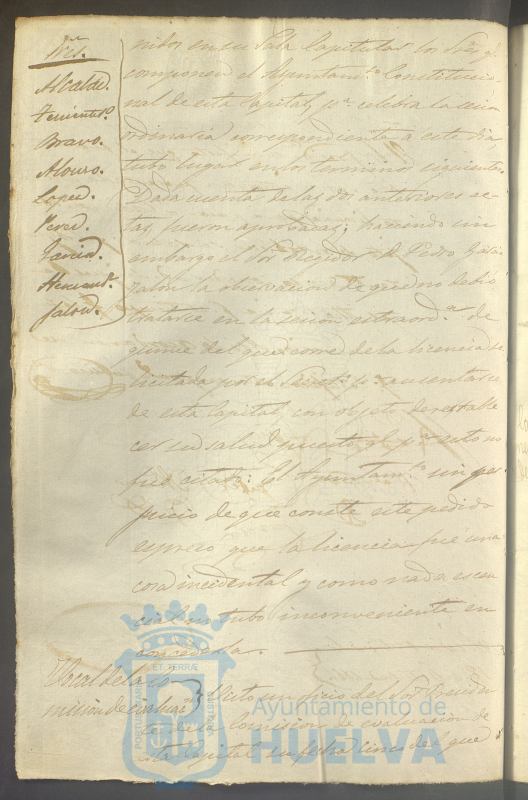 Sres.
Alcalde.
Teniente 1º.
Bravo.
Alonso.
Lopez.
Perez.
Garcia.
Hernandz.
Galvz.
nidos en su Sala Capitular los Sres. q.
componen el Ayuntamto. Constitucio-
nal de esta Capital pa. celebrar la sesion
ordinaria correspondiente a este dia
tubo lugar en los terminos siguientes.
Dada cuenta de las dos anteriores ac-
tas fueron aprobadas; haciendo sin
embargo el Sor. Regidor D. Pedro
la observacion de que no debió
tratarse en la sesion extraorda. de
quince del que corre de la licencia so-
licitada por el Secreto. pa. ausentarse
de esta Capital, con objeto de restable-
cer su salud puesto q. pa. esto no
fué citado: El Ayuntamto. sin per-
juicio de que conste este pedido
espresó que la licencia fué una
cosa incidental y como nada esen-
cial no tubo inconveniente en
concederla.
Vocal de la co-
mision de evaluac.
Visto un oficio del Sor. Presiden-
te de la Comision de evaluacion de
esta Capital su fecha cinco del que
PORTUS MARIS ET TERRÆ CUSTODIA
Ayuntamiento de
HUELVA